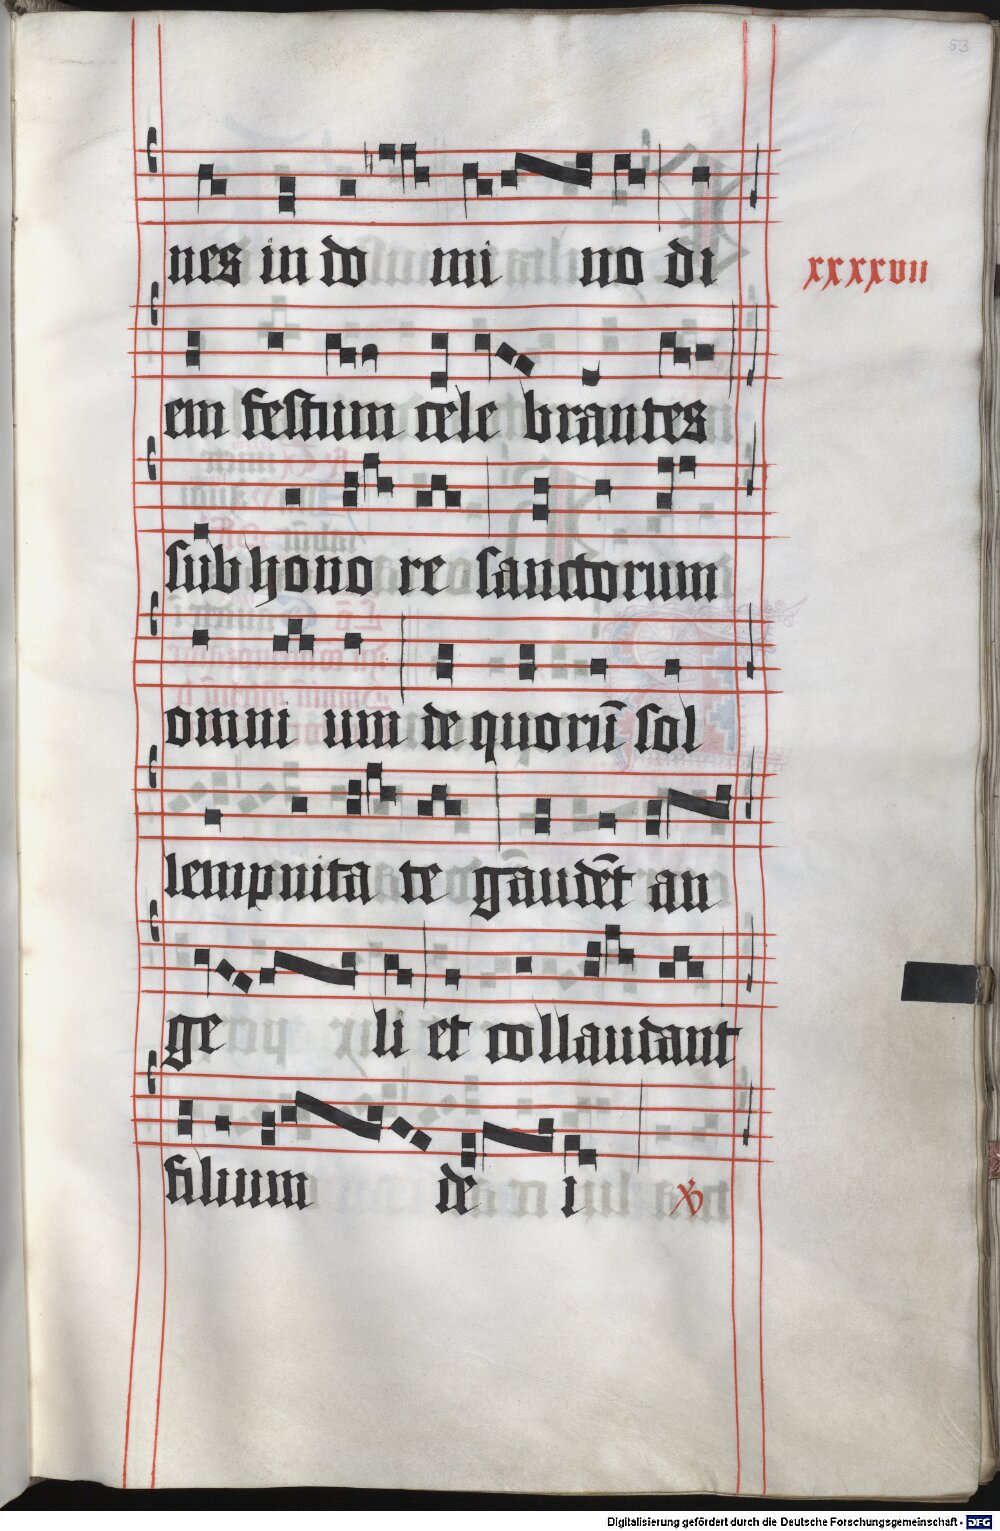 53
nes in do mi no di
xxxxvii
em festum cele brantes
sub hono re sanctorum
omni um de quorū sol
lempnita te gāudēt an
ge li et collaudant
filium de i
Digitalisierung gefördert durch die Deutsche Forschungsgemeinschaft - DFG